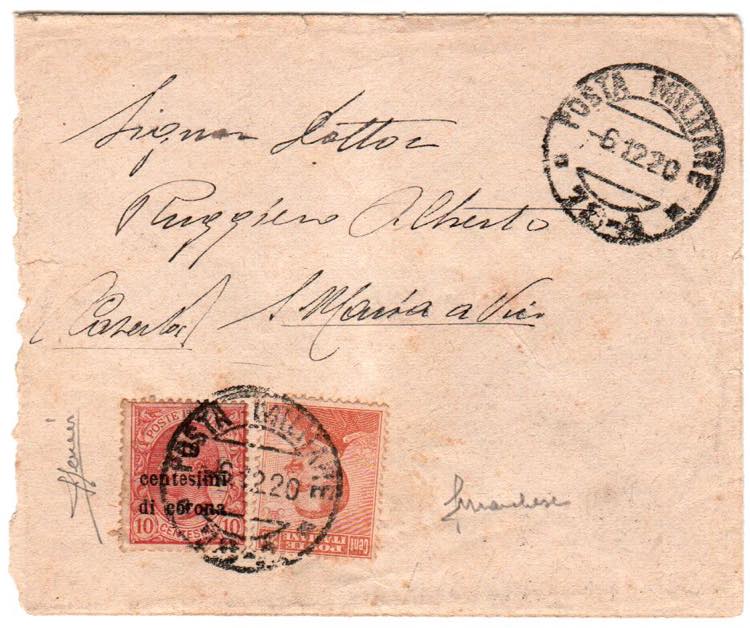 POSTA MILITARE
-6.12.20
Signor Dottor
Ruggiero Alberto
(Caserta) S. Maria a Vico
POSTE
centesimi
di corona
10 CENTESIMI 10
POSTA MILITARE
-6.12.20
POSTE
ITALIANE
Cent